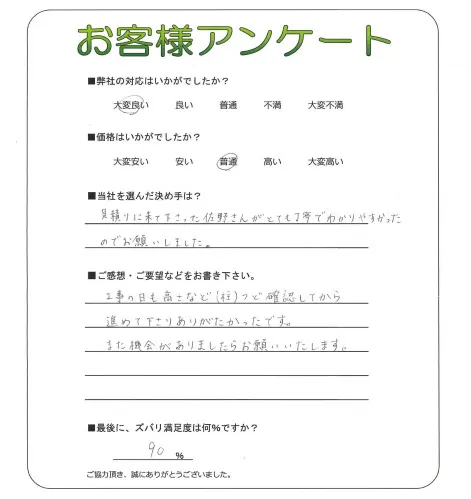 お客様アンケート
■弊社の対応はいかがでしたか？
大変良い 良い 普通 不満 大変不満
■価格はいかがでしたか？
大変安い 安い 普通 高い 大変高い
■当社を選んだ決め手は？
見積りに来て下さった佐野さんがとても丁寧でわかりやすかった
のでお願いしました。
■ご感想・ご要望などをお書き下さい。
工事の日も高さなど(柱)つど確認してから
進めて下さりありがたかったです。
また機会がありましたらお願いいたします。
■最後に、ズバリ満足度は何%ですか？
90 %
ご協力頂き、誠にありがとうございました。